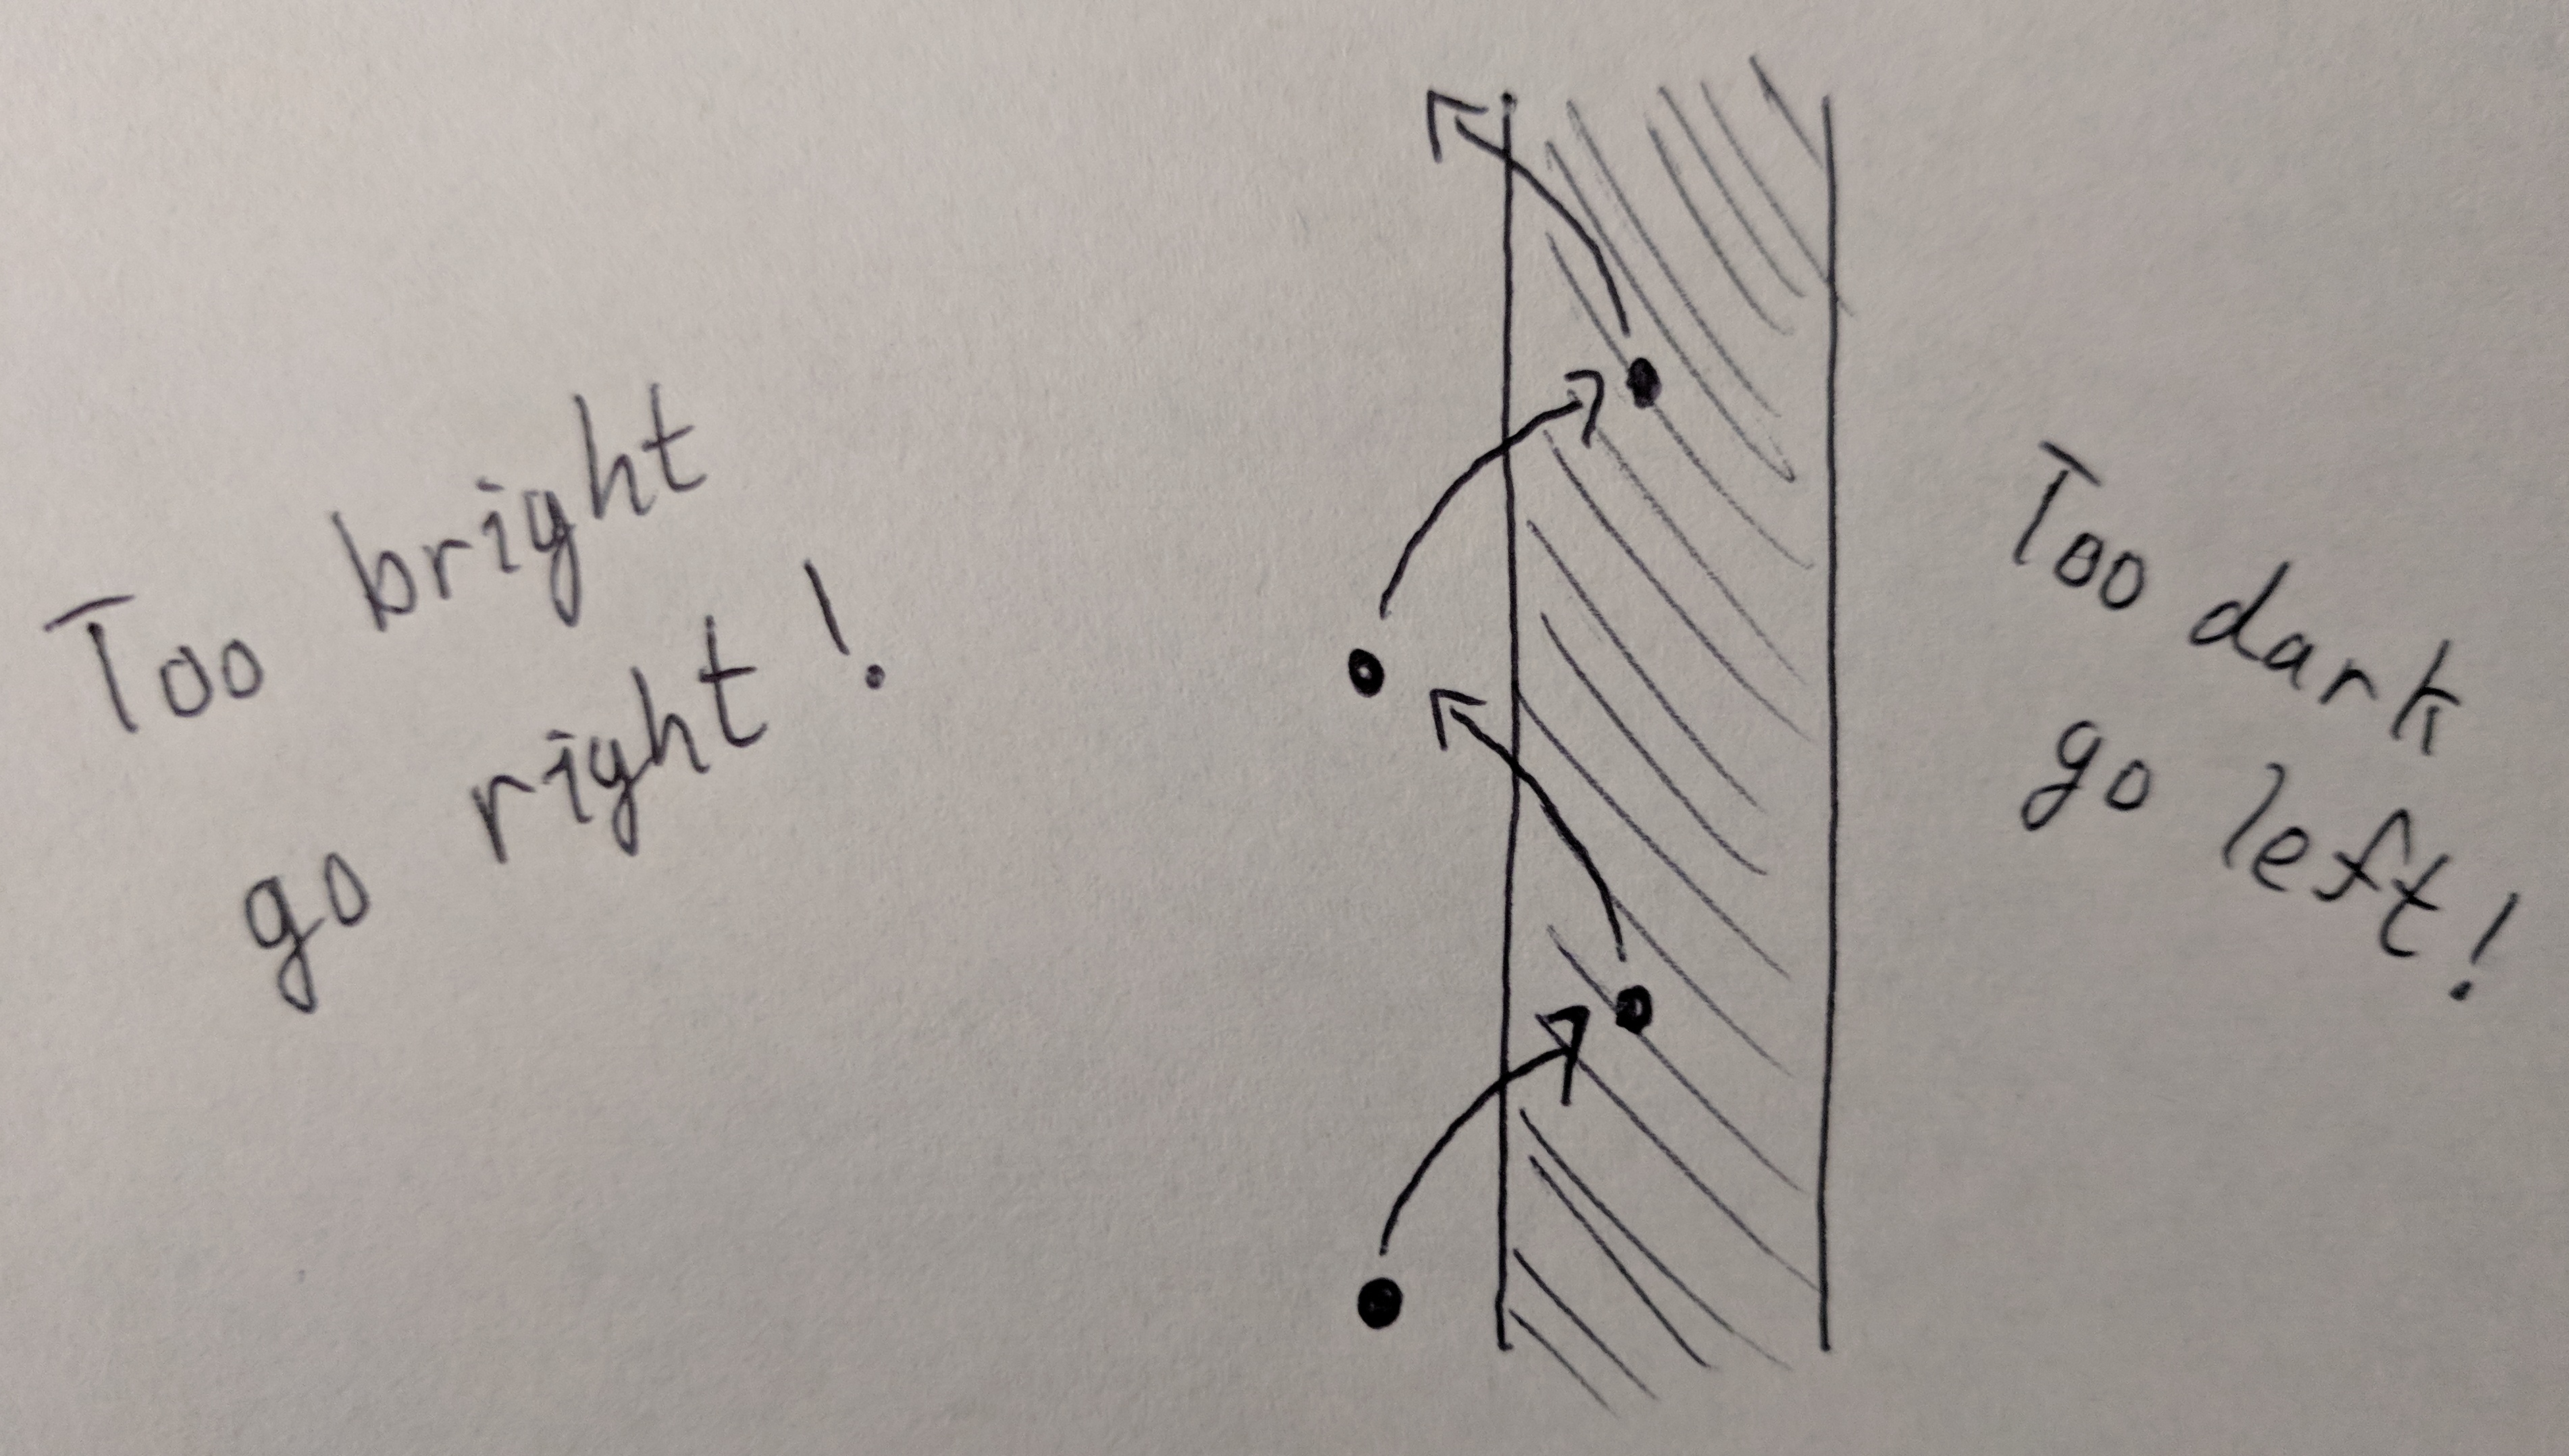 Too bright
go right!
Too dark
go left!